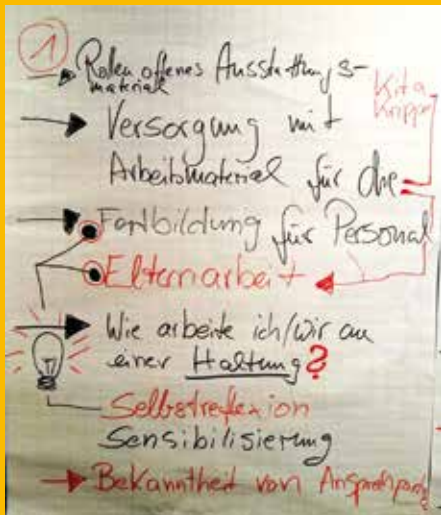 1
Rollen offenes Ausstattungs-
material
Versorgung mit
Arbeitsmaterial für die
Kita
Krippe
Fortbildung für Personal
Elternarbeit
Wie arbeite ich/wir an
einer Haltung?
Selbstreflexion
Sensibilisierung
Bekanntheit von